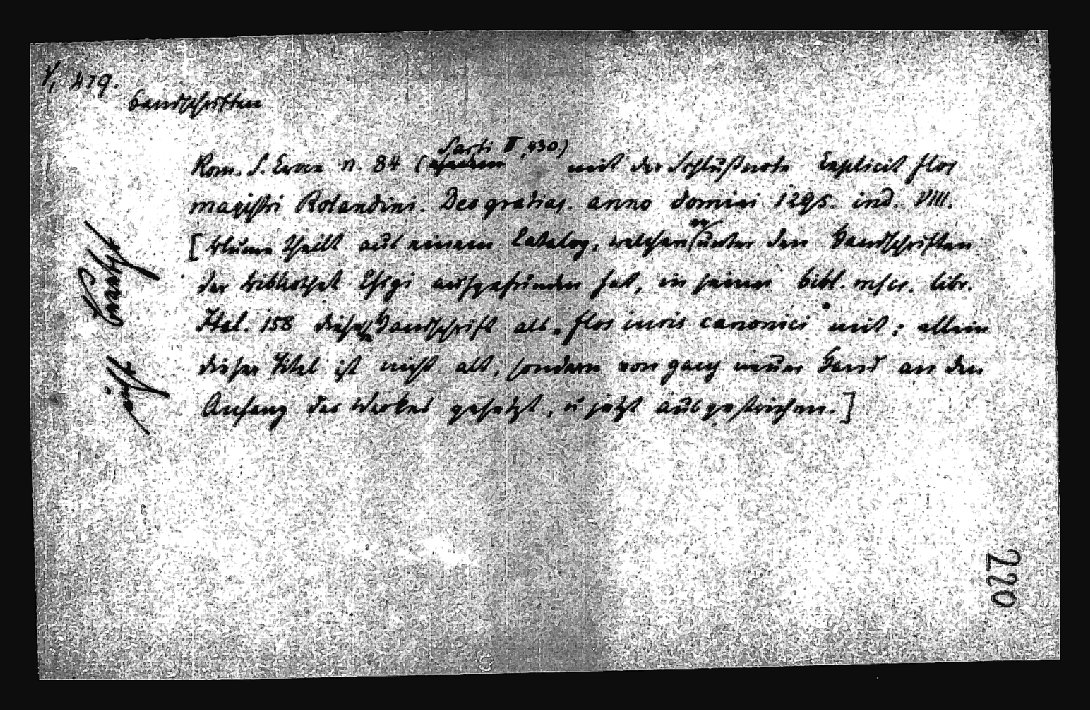 V, 419.
Handschriften
Sarti II, 430)
Rom. S. Croce n. 84 ( mit der Schlußnote Explicit flos
magistri Rolandini. Deo gratias. anno domini 1295. ind. VIII.
[Blume theilt aus einem Catalog, welchen er unter den Handschriften
der Bibliothek Chigi aufgefunden hat, in seiner bibl. mscr. libr.
Ital. 158 diese Handschrift als flos iuris canonici mit; allein
dieser Titel ist nicht alt, sondern von ganz neuer Hand an den
Anfang des Werkes gesetzt, u jetzt ausgestrichen.]
nicht benutzt
220